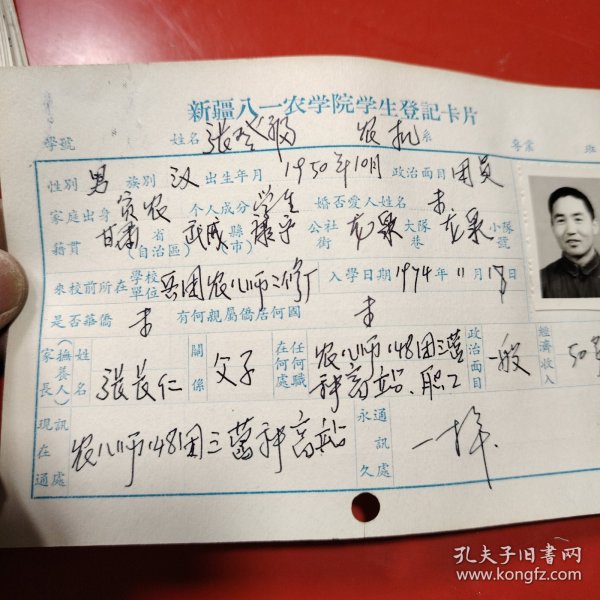 新疆八一农学院学生登記卡片
學號 姓名 张 农机 系 專業 班
性別 男 族別 汉 出生年月 1950年10月 政治面目 团员
家庭出身 贫农 个人成分 学生 婚否愛人姓名 未
籍貫 甘肃 省(自治區) 武威 縣(市) 公社街 龙泉 大隊巷 龙泉 小隊號
來校前所在學校單位 兵团农八师二修厂 入學日期 1974年11月 日
是否華僑 未 有何親屬僑居何國 未
家長(撫養人)姓名 张长仁 關係 父子 在何處任何職 农八师148团三营种 站、职工 政治面目 一般 經濟收入 50
現在通訊處 农八师148团三营种 站 永久通訊處 一样.
孔夫子旧书网
www.kongfz.com